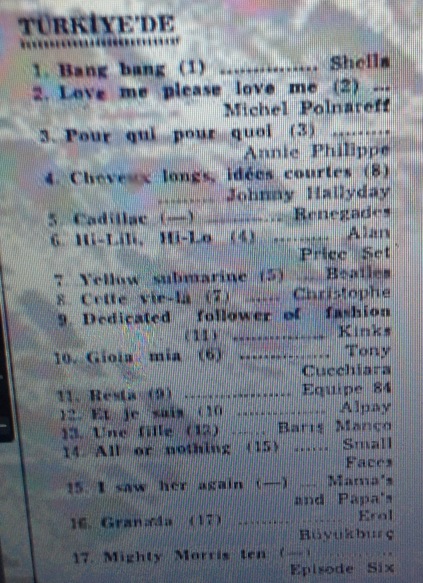 TÜRKİYE'DE
1. Bang bang (1) ................ Sheila
2. Love me please love me (2) ...
Michel Polnareff
3. Pour qui pour quoi (3) .........
Annie Philippe
4. Cheveux longs, idées courtes (8)
......... Johnny Hallyday
5. Cadillac (—) ............... Renegades
6. Hi-Lili, Hi-Lo (4) .......... Alan
Price Set
7. Yellow submarine (5) ... Beatles
8. Cette vie-là (7) ...... Christophe
9. Dedicated follower of fashion
(11) .................. Kinks
10. Gioia mia (6) ............... Tony
Cucchiara
11. Resta (9) ................... Equipe 84
12. Et je sais (10 ............... Alpay
13. Une fille (12) ...... Barış Manço
14. All or nothing (15) ...... Small
Faces
15. I saw her again (—) ... Mama's
and Papa's
16. Granada (17) ............... Erol
Büyükburç
17. Mighty Morris ten (—) .........
Episode Six